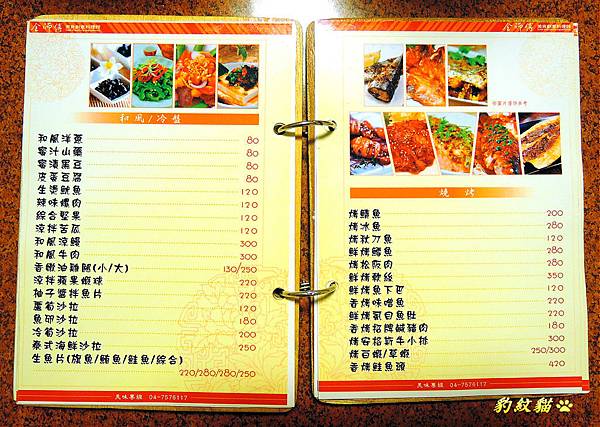 金師傅 蔥燒創意料理館
和風/冷盤
和風洋蔥 80
蜜汁山藥 80
蜜漬黑豆 80
皮蛋豆腐 80
生燙魷魚 120
辣味螺肉 120
綜合堅果 120
涼拌苦瓜 120
和風涼鰻 300
和風牛肉 300
香嫩油雞腿(小/大) 130/250
涼拌蘋果蝦球 220
柚子醬拌魚片 220
蘆筍沙拉 120
魚卵沙拉 180
冷筍沙拉 200
泰式海鮮沙拉 250
生魚片(旗魚/鮪魚/鮭魚/綜合)
220/280/280/250
美味專線 04-7576117
金師傅
燒烤
烤鯖魚 200
烤冰魚 280
烤秋刀魚 120
鮮烤鱈魚 280
烤松阪肉 280
鮮烤軟絲 350
鮮烤魚下巴 120
香烤味噌魚 220
鮮烤虱目魚肚 220
香烤招牌鹹豬肉 180
烤安格斯牛小排 300
烤百蝦/草蝦 250/300
香烤鮭魚頭 420
美味專線 04-7576117
豹紋貓